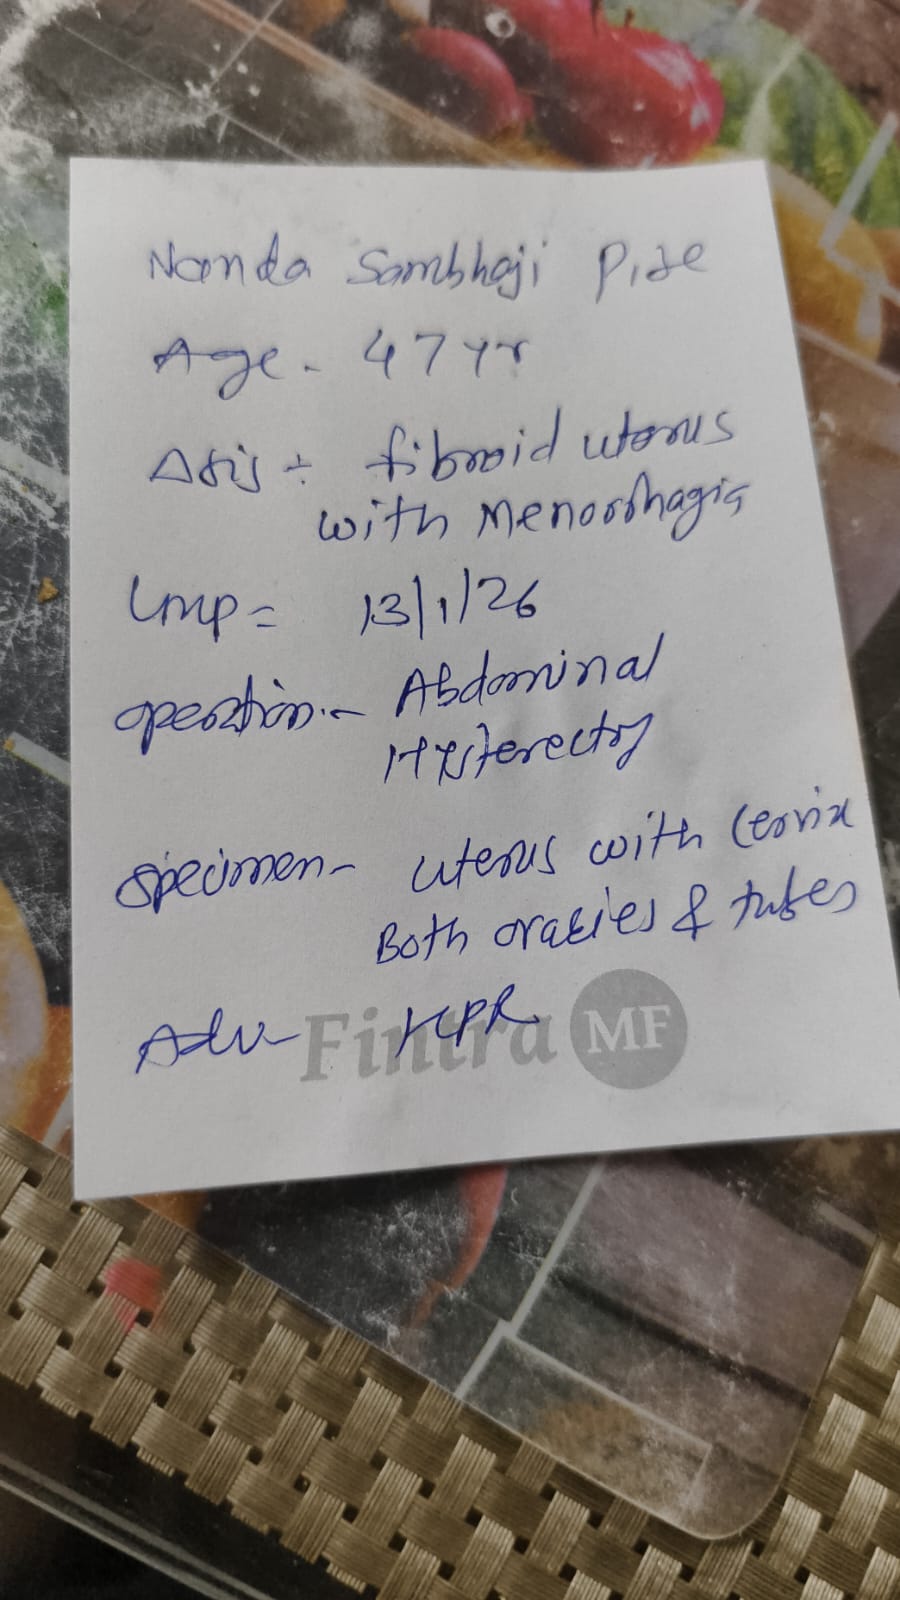 Nanda Sambhaji Pise
Age - 47 yr
Δsis ÷ fibroid uterus
with Menorrhagia
Lmp = 13/1/26
operation :- Abdominal
Hysterectoy
specimen - uterus with Cervix
Both oraries & tubes
Adv - HPR
Fintra MF